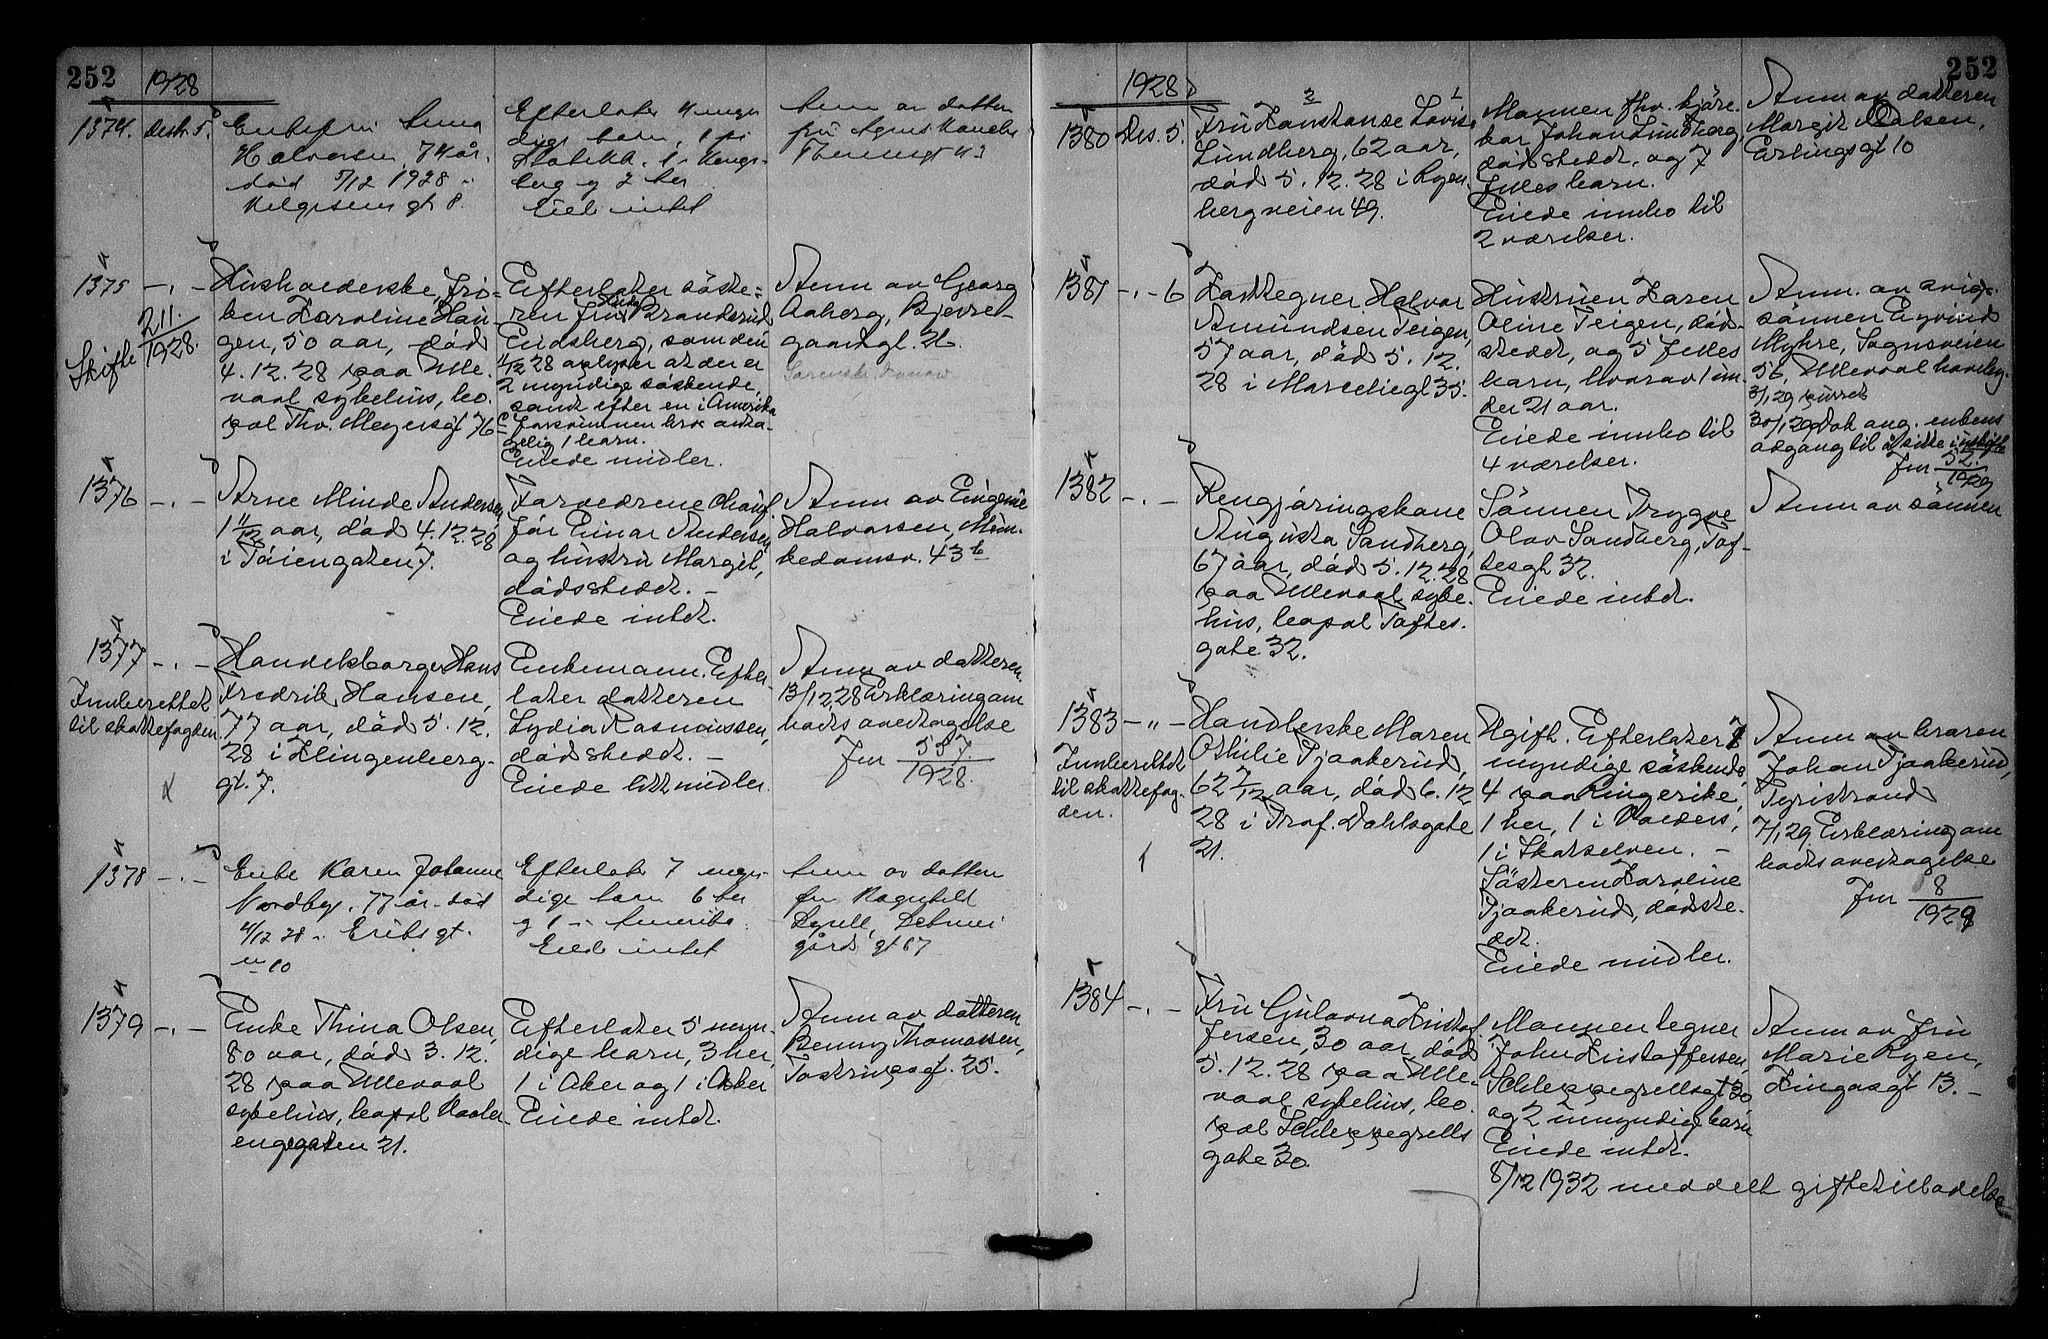 252
1928
1374. Desbr 5.
Enkefru Anna
Halvorsen, 74 år.
død 5/12 1928 i
Helgesens gt 8.
Efterlater 4 myn
dige barn, 1 på
1 Kongs-
berg og 2 her
Eiet intet
Anm av datter
fru Agnes
1375 - " -
Skifte 211./1928.
Husholderske, frø-
ken Karoline Hau-
gen, 50 aar, død
4. 12. 28 paa Ulle-
vaal sykehus, bo-
pæl Thv. Meyersgt 76
Efterlater søste-
ren fru Brandsrud
Eidsberg, som den
11/12 28 oplyser at der er
2 myndige søskende
samt efter en i Amerika
forsvunnen bror anta-
gelig 1 barn.
Eiede midler.
Anm av Georg
Aaberg, Bjerre-
gaardgt. 26.
1376 - " -
Arne Minde Andersen
1 11/12 aar, død 4. 12. 28
i Tøiengaten 7.
Forældrene chauf-
før Einar Andersen
og hustru Margit,
dødsstedet. -
Eiede intet.
Anm av Eugenie
Halvorsen, Mun-
kedamsv. 43 b
1377 - " -
Innberettet
til skattefogden
Handelsborger Hans
Fredrik Hansen,
77 aar, død 5. 12.
28 i Klingenberg-
gt. 7.
Enkemann. Efter-
later datteren
Lydia Rasmussen,
dødsstedet. -
Eiede litt midler.
Anm av datteren.
13/12 28 Erklæring om
boets overtagelse
Jnr 557./1928.
1378 - " -
Enke Karen Johanne
Nordby. 77 år. død
4/12 28 i Eriks gt.
no 10
Efterlater 7 myn-
dige barn 6 her
og 1 i Amerika.
Eiede intet
Anm av datter
fru Ragnhild
gårds gt 67
1379 - " -
Enke Thina Olsen,
80 aar, død 3. 12.
28 paa Ullevaal
sykehus, bopæl Vaaler
engegaten 21.
Efterlater 5 myn-
dige barn, 3 her,
1 i Aker og 1 i Asker
Eiede intet.
Anm av datteren
Benny Thomassen,
Tostrupsgt. 25.
252
1928
1380 Des. 5.
2 1
Fru Konstanse Lovise
Lundberg, 62 aar,
død 5. 12. 28 i Ryen-
bergveien 49.
Mannen fhv. kjøre-
kar Johan Lundberg,
dødsstedet, og 7
felles barn.
Eiede innbo til
2 værelser.
Anm av datteren
Margit Olsen,
Erlingsgt 10
1381 - " - 6
Karttegner Halvor
Amundsen Teigen,
57 aar, død 5. 12.
28 i Marceliegt 35.
Hustruen Karen
Oline Teigen, død-
stedet, og 5 felles
barn, hvorav 1 un-
der 21 aar.
Eiede innbo til
4 værelser.
Anm. av sviger-
sønnen Eyvind
Myhre, Sognsveien
56, Ullevaal haveby.
3/1 29 purret
30/1 29 Dok ang. enkens
adgang til å sitte i uskifte
Jnr 52./1929
1382 - " -
Rengjøringskone
Augusta Sandberg,
67 aar, død 5. 12. 28
paa Ullevaal syke-
hus, bopæl Toftes-
gate 32.
Sønnen Trygve
Olav Sandberg, Tof-
tesgt 32.
Eiede intet.
Anm av sønnen
1383 - " -
Innberettet
til skattefog-
den.
Handlerske Maren
Othilie Tjaakerud,
62 7/12 aar, død 6. 12
28 i Prof. Dahlsgate
21.
Ugift. Efterlater 7
myndige søskende
4 paa Ringerike,
1 her, 1 i Valdres,
1 i Skotselven. -
Søsteren Karoline
Tjaakerud, dødste-
det.
Eiede midler.
Anm av broren
Johan Tjaakerud,
Tyristrand
7/1 29 Erklæring om
boets overtagelse
Jnr 8/1929
1384 - " -
Fru Gulovna Kristof-
fersen, 30 aar, død
5. 12. 28 paa Ulle-
vaal sykehus, bo-
pæl Schleppegrells
gate 30.
Mannen tegner
John Kristoffersen,
Schleppegrellsgt 30,
og 2 umyndige barn
Eiede intet.
8/12 1932 meddelt giftetilladelse
Anm av fru
Marie Ryen,
Kingosgt 13. -